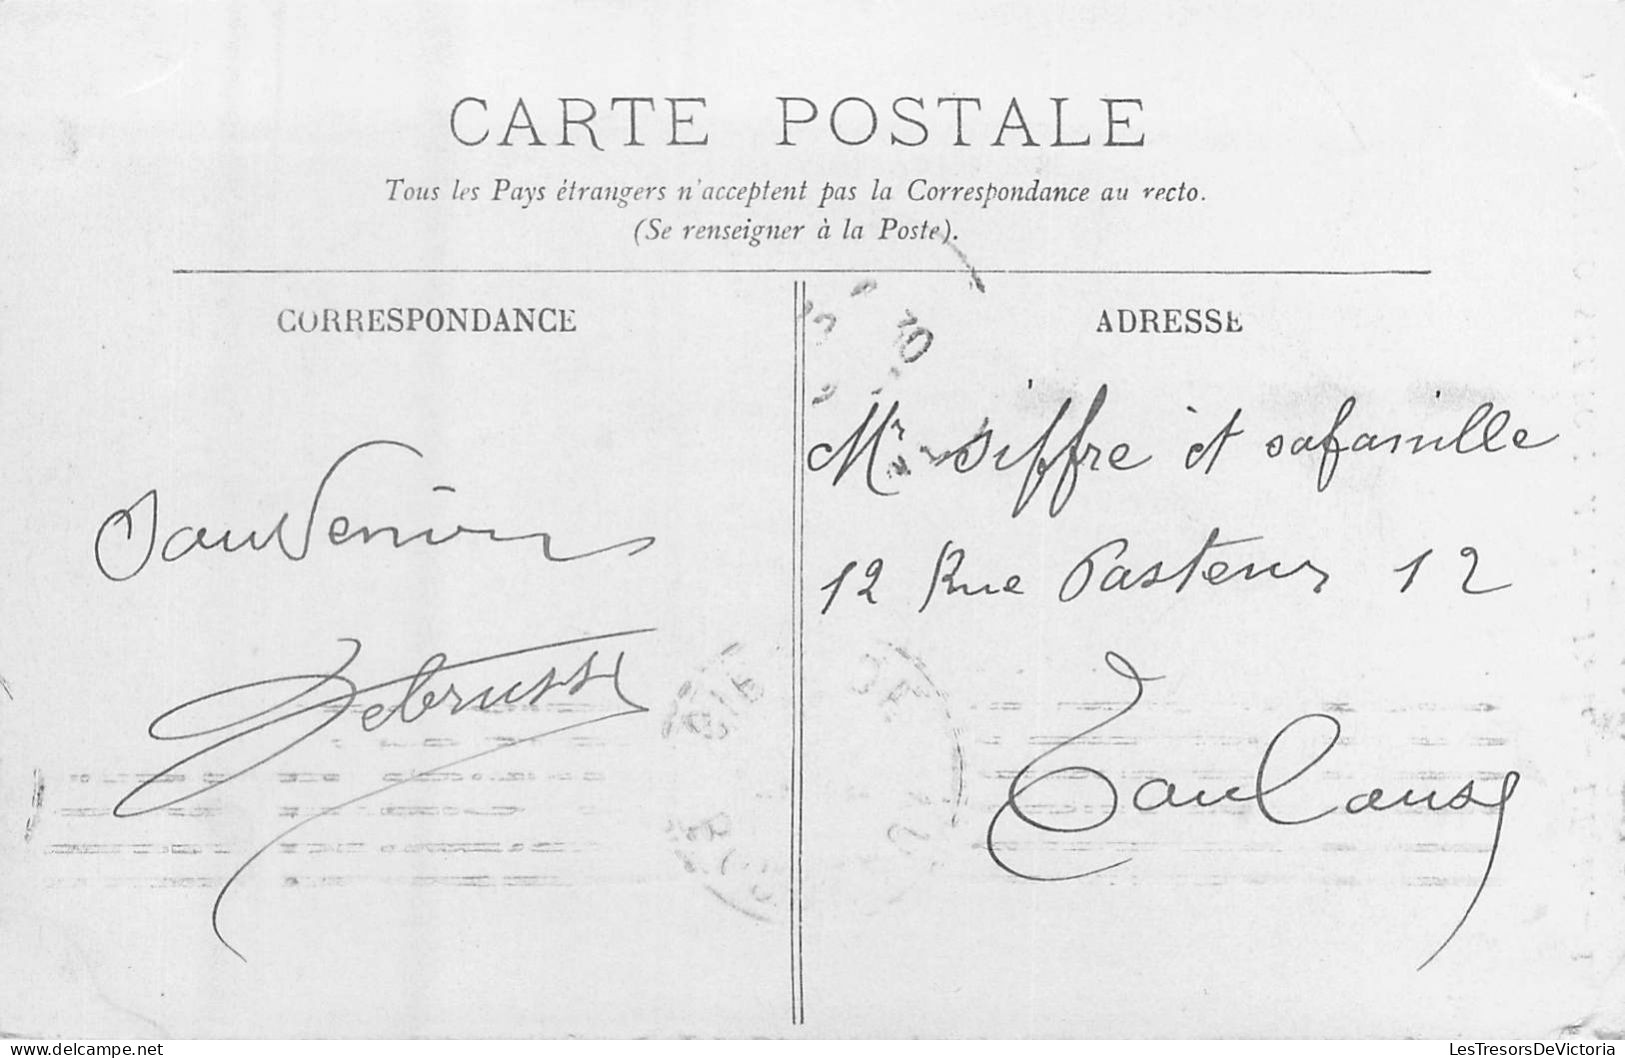 CARTE POSTALE
Tous les Pays étrangers n'acceptent pas la Correspondance au recto.
(Se renseigner à la Poste).
CORRESPONDANCE
Souvenirs
Debrusse
ADRESSE
Mr Siffre et sa famille
12 Rue Pasteur 12
Toulouse
LesTresorsDeVictoria